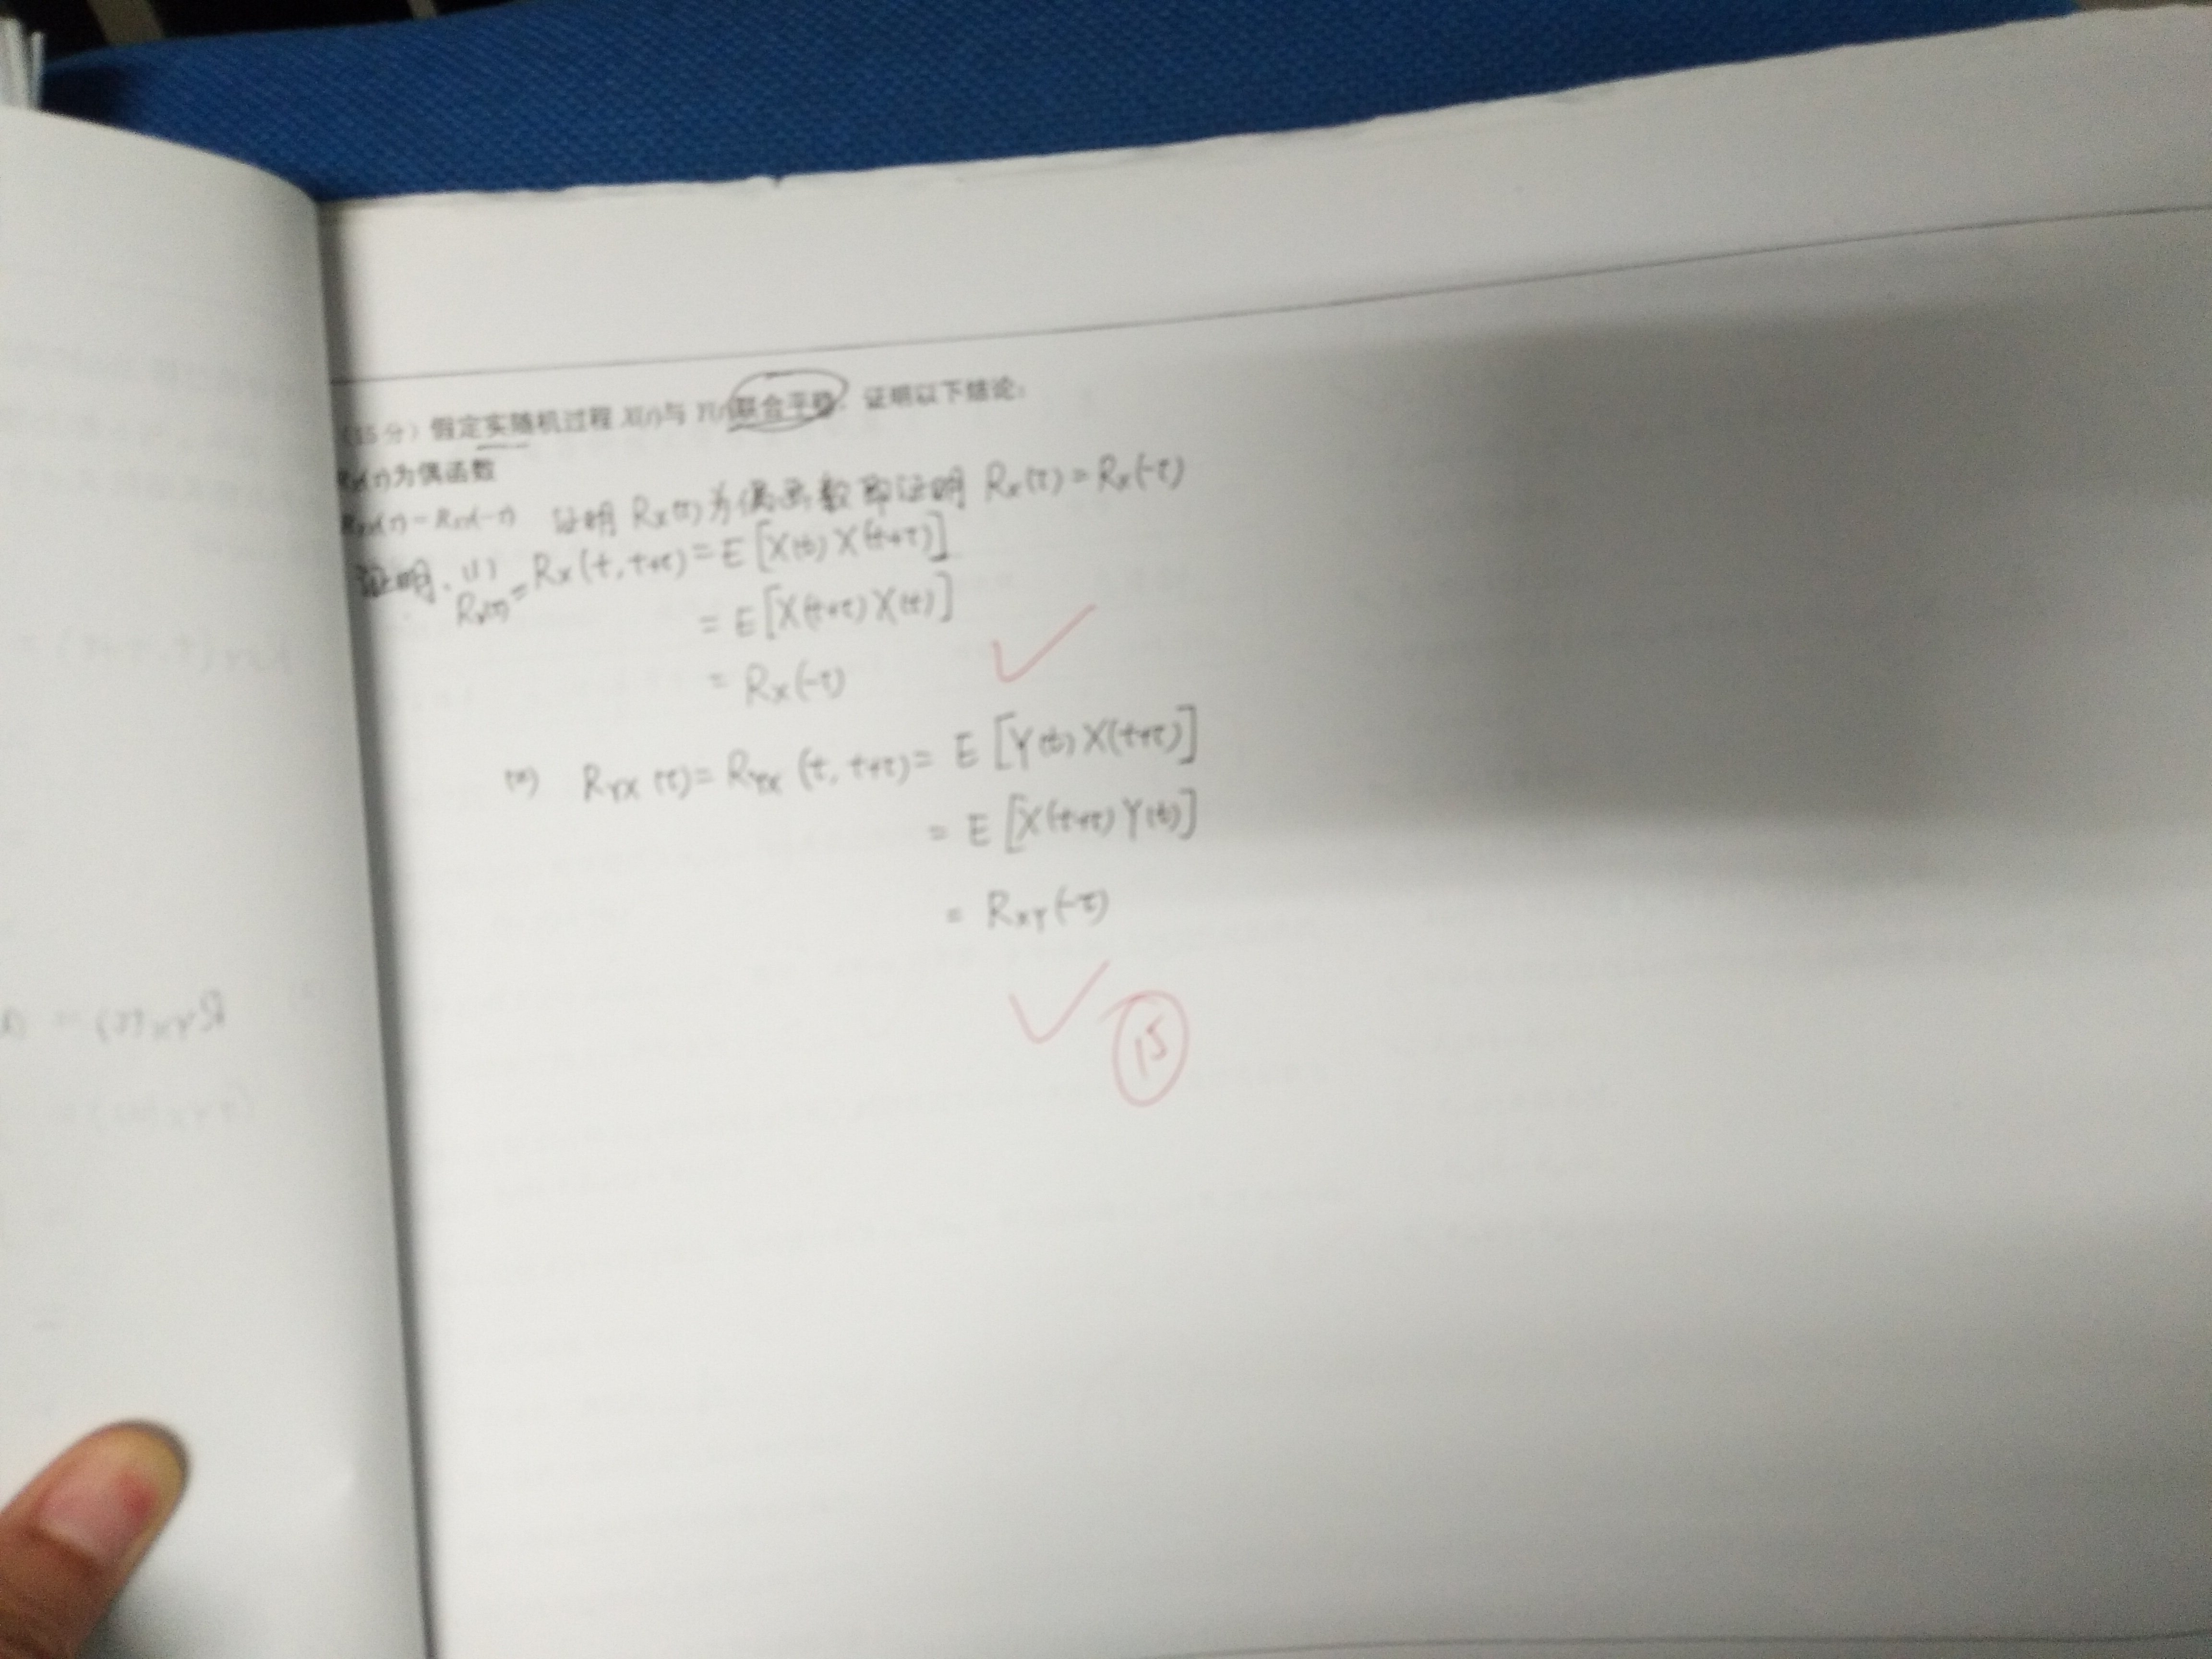 15 分）假定实随机过程 X(t)与 Y(t)联合平稳，证明以下结论：
Rx(τ)为偶函数
Ryx(τ)=Rxy(-τ) 证明 Rx(τ)为偶函数即证明 Rx(τ)=Rx(-τ)
证明. (1) Rx(τ)=Rx(t,t+τ)=E[X(t)X(t+τ)]
=E[X(t+τ)X(t)]
=Rx(-τ)
(2) RYX(τ)=RYX(t,t+τ)=E[Y(t)X(t+τ)]
=E[X(t+τ)Y(t)]
=RXY(-τ)
15